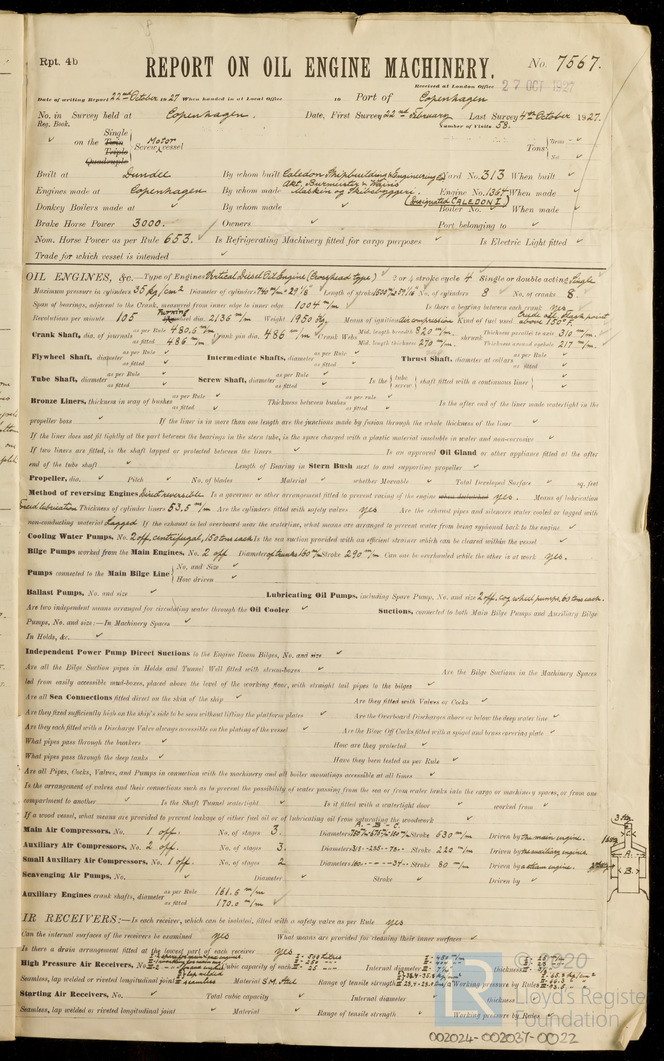 Rpt. 4b
REPORT ON OIL ENGINE MACHINERY.
No. 7567.
Received at London Office 27 OCT 1927
Date of writing Report 22nd October 1927 When handed in at Local Office 19 Port of Copenhagen
No. in Survey held at Copenhagen. Date, First Survey 22nd February Last Survey 4th October 1927.
Reg. Book. Number of Visits 58.
on the Single Twin Triple Quadruple Screw Motor vessel Tons Gross Net
Built at Dundee By whom built Caledon Shipbuilding & Engineering Co Yard No. 313 When built
Engines made at Copenhagen By whom made Akt. Burmeister & Wains Maskin og Skibsbyggeri Engine No. 1364 When made
(Designated CALEDON I)
Donkey Boilers made at By whom made Boiler No. When made
Brake Horse Power 3000. Owners Port belonging to
Nom. Horse Power as per Rule 653. Is Refrigerating Machinery fitted for cargo purposes Is Electric Light fitted
Trade for which vessel is intended
OIL ENGINES, &c.—Type of Engines Vertical Diesel Oil Engine (Crosshead type) 2 or 4 stroke cycle 4 Single or double acting Single
Maximum pressure in cylinders 35 kg/cm2 Diameter of cylinders 740 m/m = 29 1/8" Length of stroke 1500 m/m No. of cylinders 8 No. of cranks 8
Span of bearings, adjacent to the Crank, measured from inner edge to inner edge 1004 m/m Is there a bearing between each crank yes
Revolutions per minute 105 Flywheel dia. 2136 m/m Weight 1950 kg. Means of ignition compression Kind of fuel used Crude oil, flash point above 150° F.
Crank Shaft, dia. of journals as per Rule 480.6 m/m as fitted 486 m/m Crank pin dia. 486 m/m Crank Webs Mid. length breadth 820 m/m Mid. length thickness 270 m/m shrunk Thickness parallel to axis 310 m/m Thickness around eyehole 217 m/m
Flywheel Shaft, diameter as per Rule as fitted Intermediate Shafts, diameter as per Rule as fitted Thrust Shaft, diameter at collars as per Rule as fitted
Tube Shaft, diameter as per Rule as fitted Screw Shaft, diameter as per Rule as fitted Is the tube screw shaft fitted with a continuous liner
Bronze Liners, thickness in way of bushes as per Rule as fitted Thickness between bushes as per rule as fitted Is the after end of the liner made watertight in the
propeller boss If the liner is in more than one length are the junctions made by fusion through the whole thickness of the liner
If the liner does not fit tightly at the part between the bearings in the stern tube, is the space charged with a plastic material insoluble in water and non-corrosive
If two liners are fitted, is the shaft lapped or protected between the liners Is an approved Oil Gland or other appliance fitted at the after
end of the tube shaft Length of Bearing in Stern Bush next to and supporting propeller
Propeller, dia. Pitch No. of blades Material whether Moveable Total Developed Surface sq. feet
Method of reversing Engines Direct reversible Is a governor or other arrangement fitted to prevent racing of the engine when declutched yes. Means of lubrication
Forced lubrication Thickness of cylinder liners 53.5 m/m Are the cylinders fitted with safety valves yes Are the exhaust pipes and silencers water cooled or lagged with
non-conducting material Lagged If the exhaust is led overboard near the waterline, what means are arranged to prevent water from being syphoned back to the engine
Cooling Water Pumps, No. 2 off, centrifugal, 150 tons each Is the sea suction provided with an efficient strainer which can be cleared within the vessel
Bilge Pumps worked from the Main Engines, No. 2 off Diameter of trunks 160 m/m Stroke 290 m/m Can one be overhauled while the other is at work yes.
Pumps connected to the Main Bilge Line No. and Size How driven
Ballast Pumps, No. and size Lubricating Oil Pumps, including Spare Pump, No. and size 2 off, cog wheel pumps, 60 tons each.
Are two independent means arranged for circulating water through the Oil Cooler Suctions, connected to both Main Bilge Pumps and Auxiliary Bilge
Pumps, No. and size:—In Machinery Spaces
In Holds, &c.
Independent Power Pump Direct Suctions to the Engine Room Bilges, No. and size
Are all the Bilge Suction pipes in Holds and Tunnel Well fitted with strum-boxes Are the Bilge Suctions in the Machinery Spaces
led from easily accessible mud-boxes, placed above the level of the working floor, with straight tail pipes to the bilges
Are all Sea Connections fitted direct on the skin of the ship Are they fitted with Valves or Cocks
Are they fixed sufficiently high on the ship's side to be seen without lifting the platform plates Are the Overboard Discharges above or below the deep water line
Are they each fitted with a Discharge Valve always accessible on the plating of the vessel Are the Blow Off Cocks fitted with a spigot and brass covering plate
What pipes pass through the bunkers How are they protected
What pipes pass through the deep tanks Have they been tested as per Rule
Are all Pipes, Cocks, Valves, and Pumps in connection with the machinery and all boiler mountings accessible at all times
Is the arrangement of valves and their connections such as to prevent the possibility of water passing from the sea or from water tanks into the cargo or machinery spaces, or from one
compartment to another Is the Shaft Tunnel watertight Is it fitted with a watertight door worked from
If a wood vessel, what means are provided to prevent leakage of either fuel oil or of lubricating oil from saturating the woodwork
A. - B. - C.
Main Air Compressors, No. 1 off. No. of stages 3. Diameters Stroke 630 m/m Driven by the main engine.
Auxiliary Air Compressors, No. 2 off. No. of stages 3. Diameters Stroke 220 m/m Driven by the auxiliary engines.
Small Auxiliary Air Compressors, No. 1 off. No. of stages 2 Diameters Stroke 80 m/m Driven by a steam engine.
Scavenging Air Pumps, No. Diameter Stroke Driven by
Auxiliary Engines crank shafts, diameter as per Rule 161.6 m/m as fitted 170.0 m/m
IR RECEIVERS:—Is each receiver, which can be isolated, fitted with a safety valve as per Rule yes
Can the internal surfaces of the receivers be examined yes What means are provided for cleaning their inner surfaces
Is there a drain arrangement fitted at the lowest part of each receiver yes
High Pressure Air Receivers, No. Cubic capacity of each Internal diameter thickness
Seamless, lap welded or riveted longitudinal joint seamless Material S.M. Steel Range of tensile strength Working pressure by Rules
Starting Air Receivers, No. Total cubic capacity Internal diameter thickness
Seamless, lap welded or riveted longitudinal joint Material Range of tensile strength Working pressure by Rules
© 2020
Lloyd's Register
Foundation
002024-002037-0022